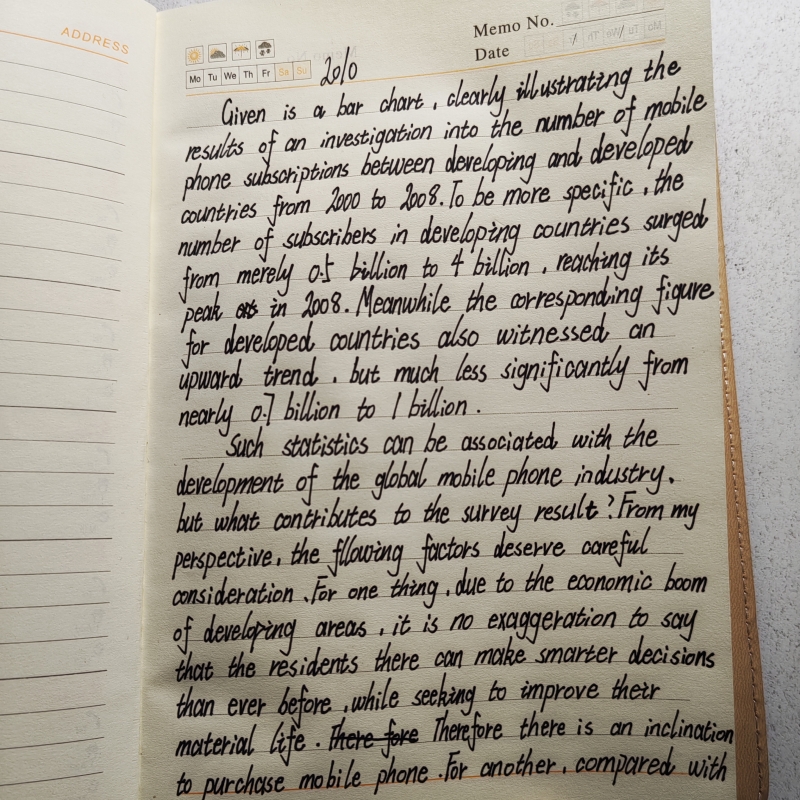 ADDRESS
Memo No.
Date
Mo Tu We Th Fr Sa Su
2010
Given is a bar chart, clearly illustrating the
results of an investigation into the number of mobile
phone subscriptions between developing and developed
countries from 2000 to 2008. To be more specific, the
number of subscribers in developing countries surged
from merely 0.5 billion to 4 billion, reaching its
peak in 2008. Meanwhile the corresponding figure
for developed countries also witnessed an
upward trend, but much less significantly from
nearly 0.7 billion to 1 billion.
Such statistics can be associated with the
development of the global mobile phone industry,
but what contributes to the survey result? From my
perspective, the fllowing factors deserve careful
consideration. For one thing, due to the economic boom
of developing areas, it is no exaggeration to say
that the residents there can make smarter decisions
than ever before, while seeking to improve their
material life. There fore Therefore there is an inclination
to purchase mobile phone. For another, compared with